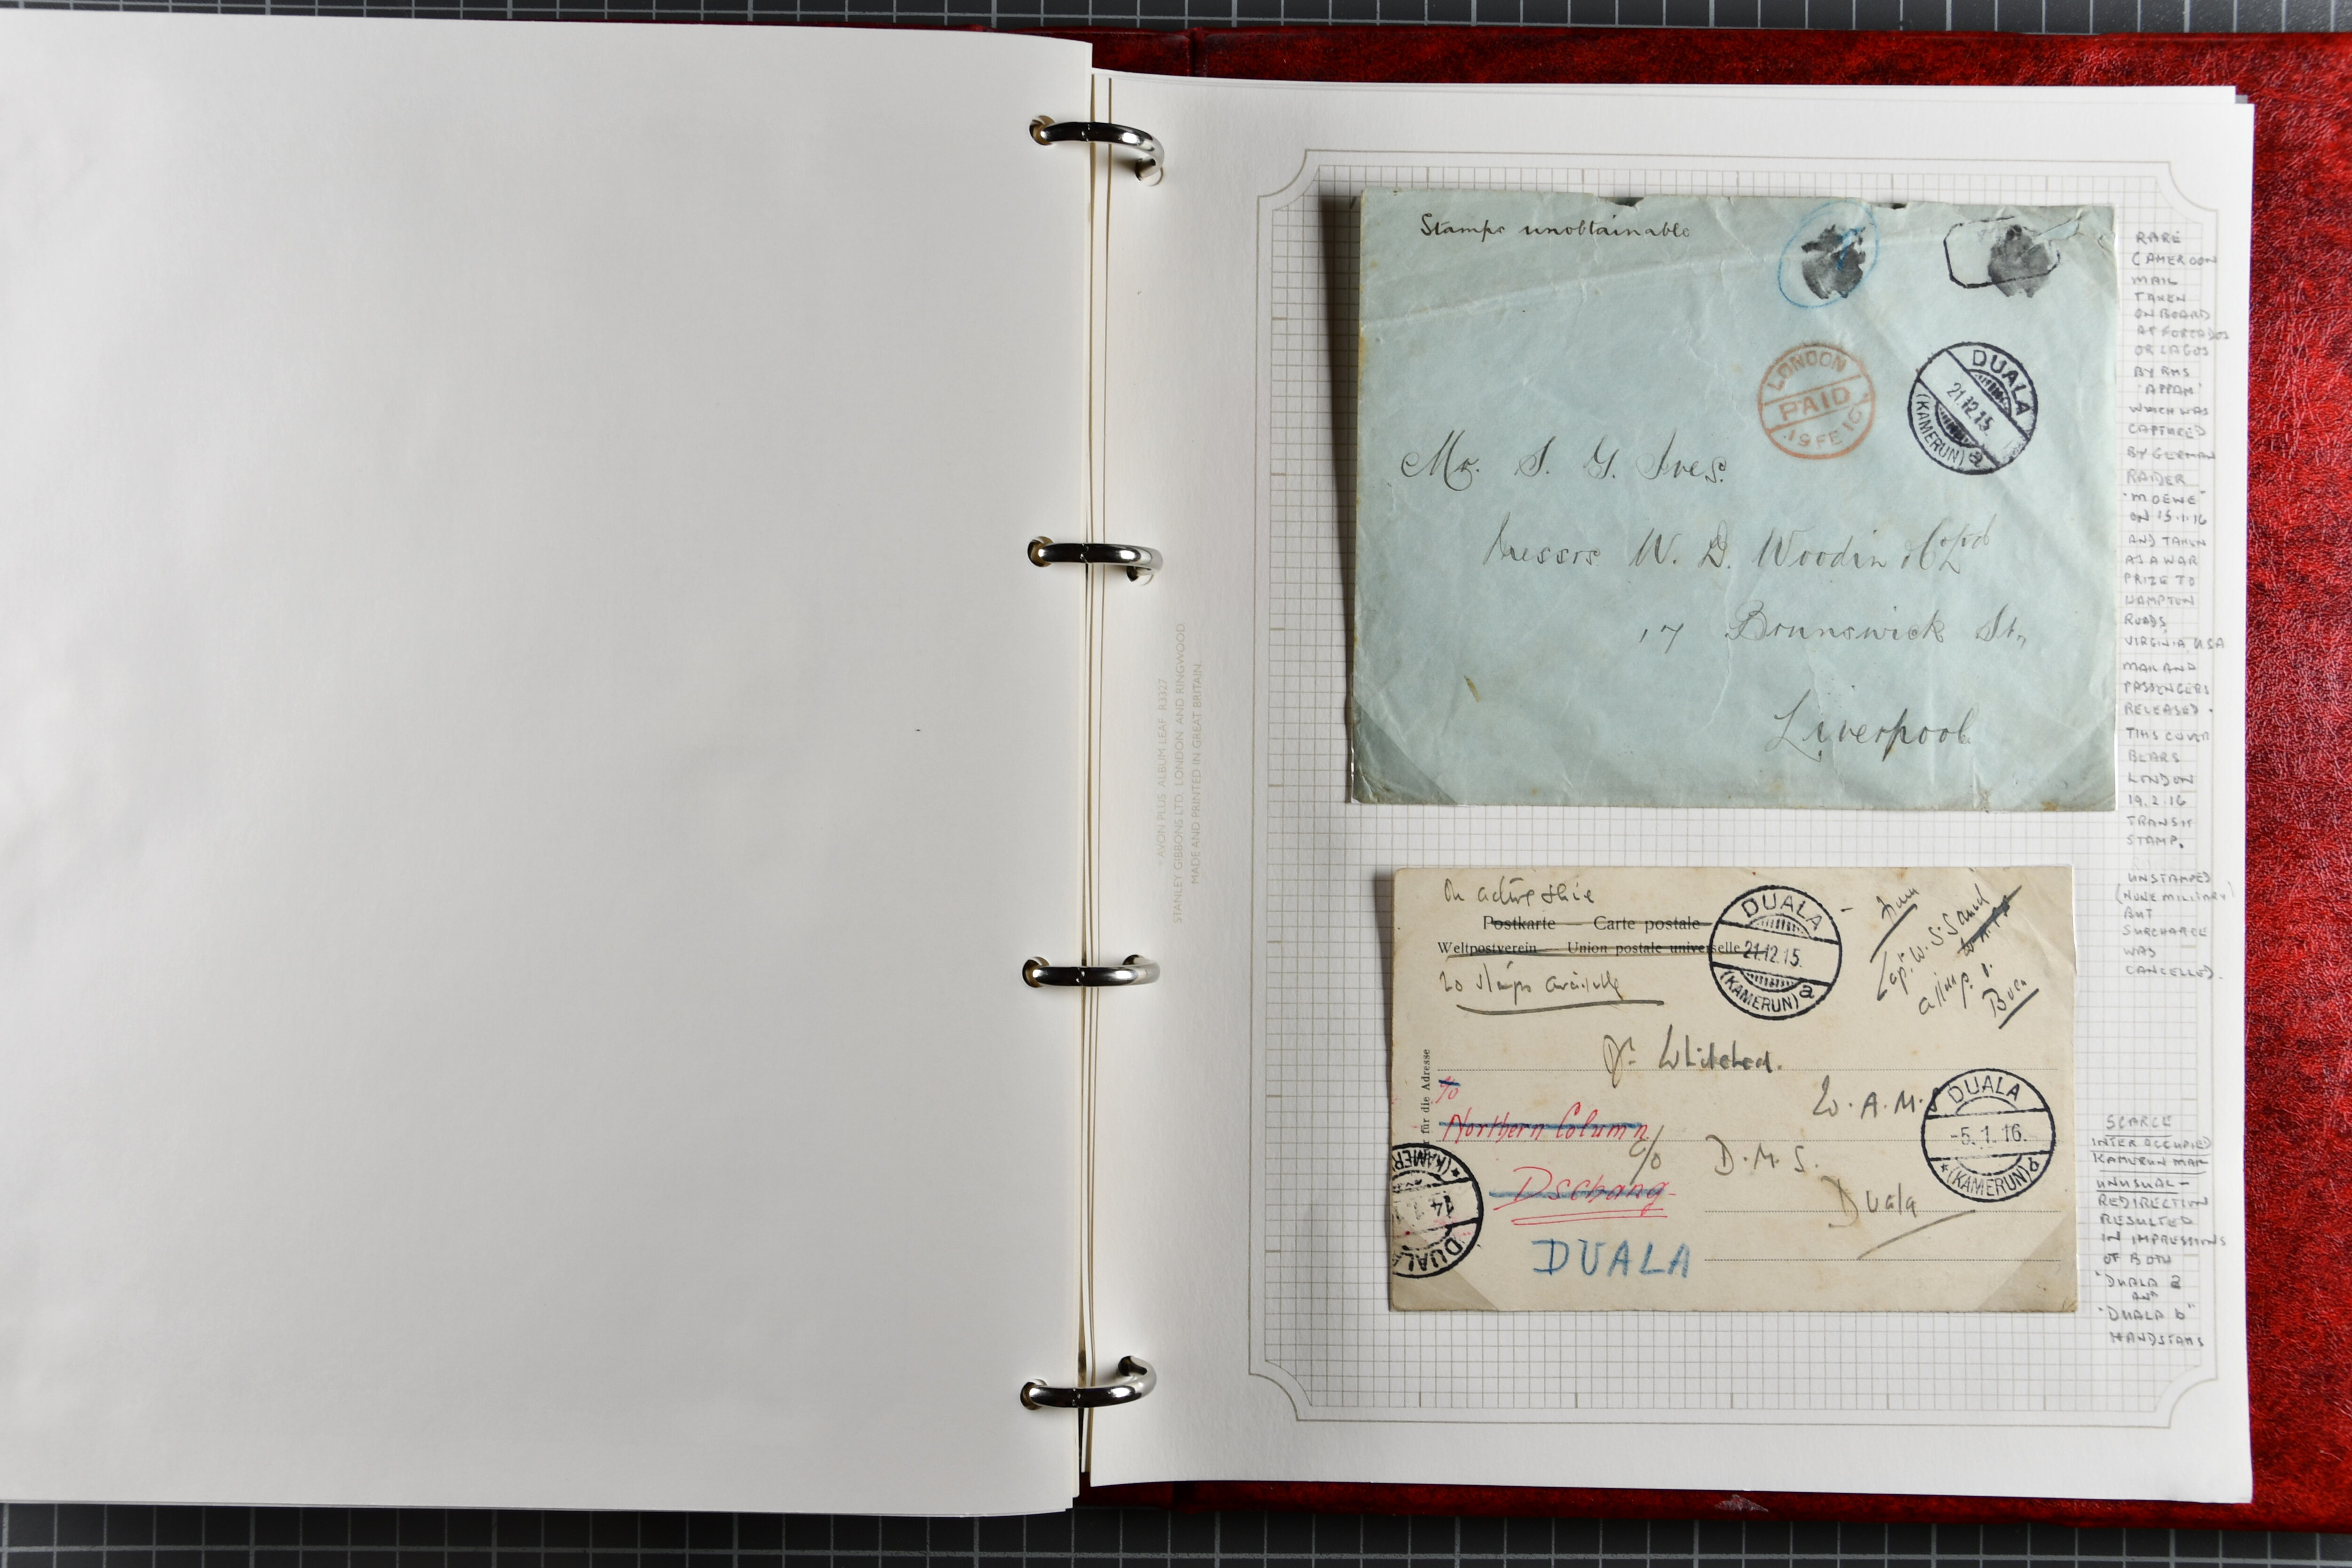 "AVON PLUS" ALBUM LEAF R3327
STANLEY GIBBONS LTD. LONDON AND RINGWOOD.
MADE AND PRINTED IN GREAT BRITAIN
Stamps unobtainable
LONDON
PAID
19 FE 16
DUALA
21.12.15.
(KAMERUN) a
Mr. S. G. Ives.
Messrs W. D. Woodin & Co Ltd
17 Brunswick St,
Liverpool
RARE
CAMEROON
MAIL
TAKEN
ON BOARD
AT FORCADOS
OR LAGOS
BY RMS
'APPAM'
WHICH WAS
CAPTURED
BY GERMAN
RAIDER
"MOEWE"
ON 15.1.16
AND TAKEN
AS A WAR
PRIZE TO
HAMPTON
ROADS,
VIRGINIA, USA
MAIL AND
PASSENGERS
RELEASED.
THIS COVER
BEARS
LONDON
19.2.16
TRANSIT
STAMP.
UNSTAMPED
(NONE MILITARY)
BUT
SURCHARGE
WAS
CANCELLED.
On active
Postkarte — Carte postale
Weltpostverein — Union postale universelle
no stamps available
DUALA
21.12.15.
(KAMERUN) a
From
Capt. W. S.
Buea
für die Adresse
Dr. Whitehead.
W. A. M. S
c/o
Northern Column
c/o D. M. S.
Dschang
Duala
DUALA
DUALA
-5.1.16.
*(KAMERUN) b
DUALA
14.1
*(KAMER
SCARCE
INTER OCCUPIED
KAMERUN MAIL
UNUSUAL -
REDIRECTION
RESULTED
IN IMPRESSIONS
OF BOTH
"DUALA a
AND
"DUALA b"
HANDSTAMS